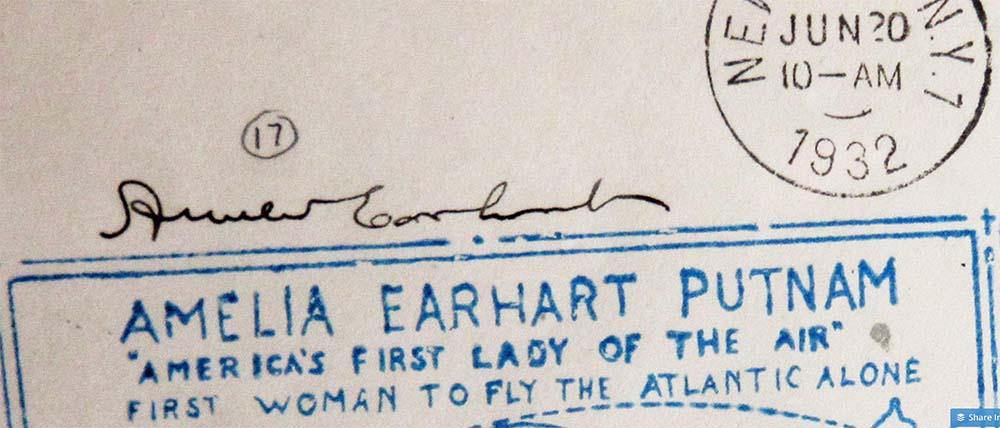 NE N.Y. 7
JUN 20
10—AM
1932
17
Amelia Earhart
AMELIA EARHART PUTNAM
"AMERICA'S FIRST LADY OF THE AIR"
FIRST WOMAN TO FLY THE ATLANTIC ALONE
Share